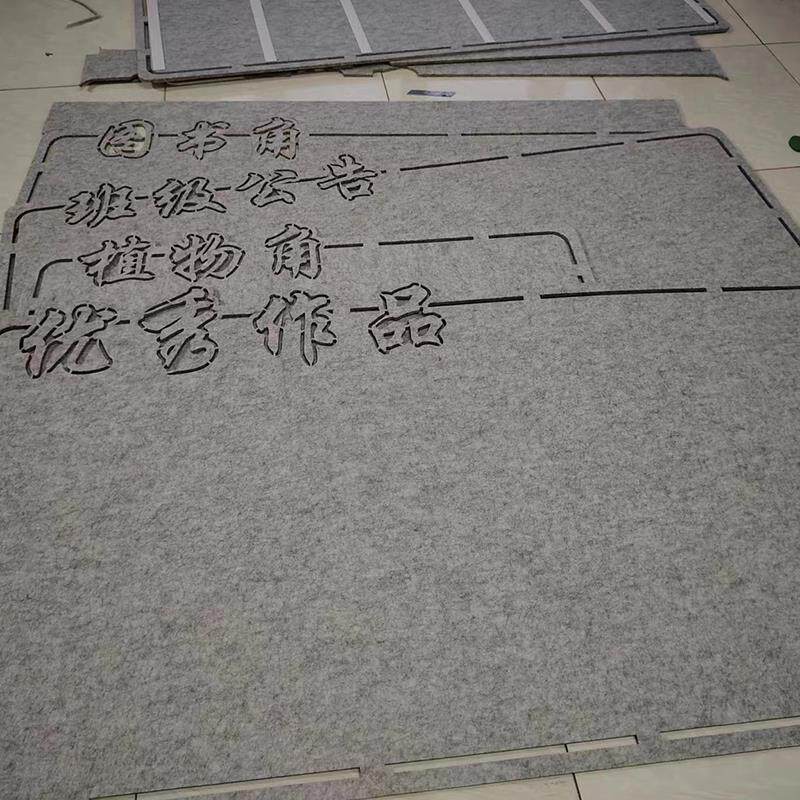 图书角
班级公告
植物角
优秀作品